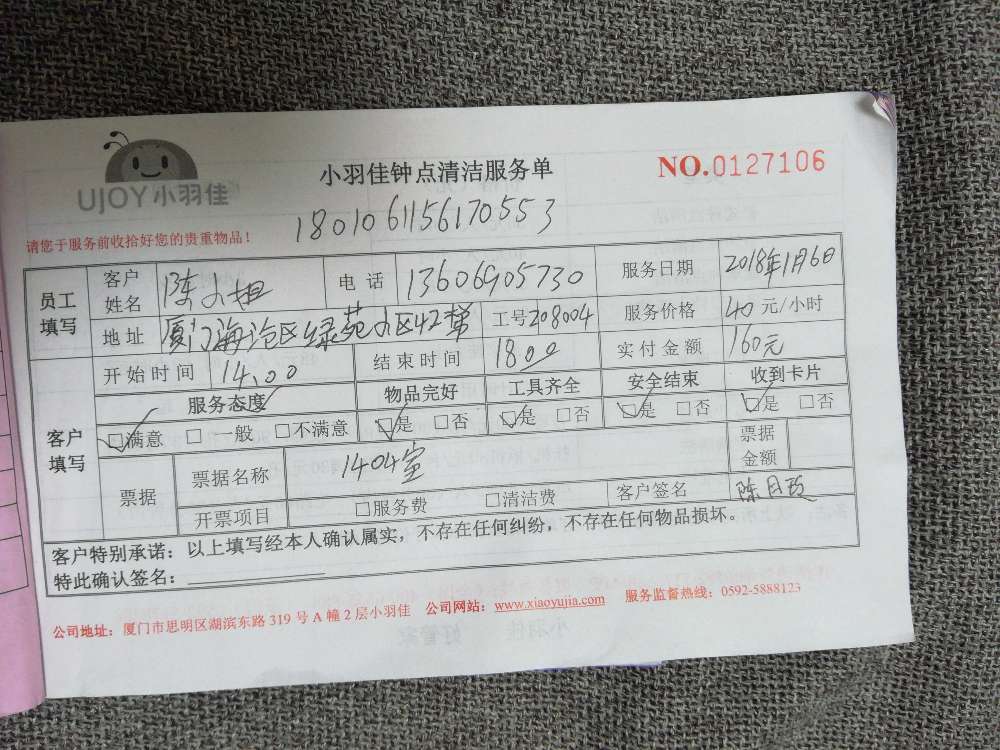 UJOY小羽佳
小羽佳钟点清洁服务单
NO.0127106
请您于服务前收拾好您的贵重物品!
180106115617０553
员工填写
客户姓名 陈小姐 电话 13606905730 服务日期 2018年1月6日
地址 厦门海沧区绿苑小区42梯 工号208004 服务价格 40元/小时
开始时间 14.00 结束时间 1800 实付金额 160元
客户填写
服务态度 物品完好 工具齐全 安全结束 收到卡片
☑满意 □一般 □不满意 ☑是 □否 ☑是 □否 ☑是 □否 ☑是 □否
票据 票据名称 1404室 票据金额
开票项目 □服务费 □清洁费 客户签名
客户特别承诺:以上填写经本人确认属实,不存在任何纠纷,不存在任何物品损坏。
特此确认签名:
公司地址:厦门市思明区湖滨东路319号A幢2层小羽佳 公司网站:www.xiaoyujia.com 服务监督热线:0592-5888123